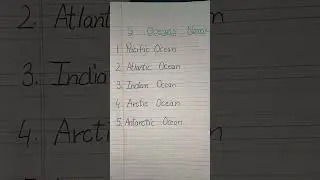 5 Oceans Name
1. Pacific Ocean
2. Atlantic Ocean
3. Indian Ocean
4. Arctic Ocean
5. Antarctic Ocean
2. Atlant
3. Indian
4. Arcti